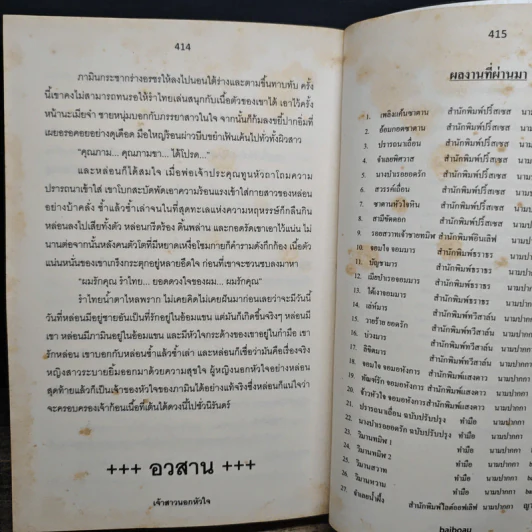 414
ภามินกระชากร่างอรชรให้ลงไปนอนใต้ร่างและตามขึ้นทาบทับ ครั้ง
นี้เขาคงไม่สามารถทนรอให้รำไทยเล่นสนุกกับเนื้อตัวของเขาได้ เอาไว้ครั้ง
หน้านะเมียจ๋า ชายหนุ่มบอกกับภรรยาสาวในใจ จากนั้นก็ก้มลงขยี้ปากอิ่มที่
เผยอรอคอยอย่างดุเดือด มือใหญ่ร้อนผ่าวบีบขยำเฟ้นเค้นไปทั่วทั้งผิวสาว
“คุณภาม... คุณภามขา... ได้โปรด...”
และหล่อนก็ได้สมใจ เมื่อพ่อเจ้าประคุณทูนหัวถาโถมความ
ปรารถนาเข้าใส่ เขาโบกสะบัดพัดเอาความร้อนแรงเข้าใส่กายสาวของหล่อน
อย่างบ้าคลั่ง ซ้ำแล้วซ้ำเล่าจนในที่สุดทะเลแห่งความหฤหรรษ์ก็กลืนกิน
หล่อนลงไปเสียทั้งตัว หล่อนกรีดร้อง ดิ้นพล่าน และกอดรัดเขาเอาไว้แน่น ไม่
นานต่อจากนั้นหลังคนตัวโตที่มีหยาดเหงื่อโซมกายก็คำรามดังกึกก้อง เนื้อตัว
แน่นหนั่นของเขาเกร็งกระตุกอยู่หลายอึดใจ ก่อนที่เขาจะชวนซบลงมาหา
“ผมรักคุณ รำไทย... ยอดดวงใจของผม... ผมรักคุณ”
รำไทยน้ำตาไหลพราก ไม่เคยคิดไม่เคยฝันมาก่อนเลยว่าจะมีวันนี้
วันที่หล่อนมีอยู่ชายอันเป็นที่รักอยู่ในอ้อมแขน แต่มันก็เกิดขึ้นจริงๆ หล่อนมี
เขา หล่อนมีภามินอยู่ในอ้อมแขน และมีหัวใจกระด้างของเขาอยู่ในกำมือ เขา
รักหล่อน เขาบอกกับหล่อนซ้ำแล้วซ้ำเล่า และหล่อนก็เชื่อว่ามันคือเรื่องจริง
หญิงสาวระบายยิ้มออกมาด้วยความสุขใจ ผู้หญิงนอกหัวใจอย่างหล่อน
สุดท้ายแล้วก็เป็นเจ้าของหัวใจของภามินได้อย่างแท้จริงซึ่งหล่อนก็แน่ใจว่า
จะครอบครองเจ้าก้อนเนื้อที่เต้นได้ดวงนี้ไปชั่วนิรันดร์
+++ อวสาน +++
เจ้าสาวนอกหัวใจ
415
ผลงานที่ผ่านมา
1. เพลิงแค้นซาตาน สำนักพิมพ์ปริ๊นเซส
2. อ้อมกอดซาตาน สำนักพิมพ์ปริ๊นเซส
3. ปรารถนาเถื่อน สำนักพิมพ์ปริ๊นเซส
4. จำเลยพิศวาส สำนักพิมพ์ปริ๊นเซส
5. นางบำเรอยอดรัก สำนักพิมพ์ปริ๊นเซส
6. สวรรค์เถื่อน สำนักพิมพ์ปริ๊นเซส
7. ซาตานหัวใจหิน สำนักพิมพ์ปริ๊นเซส
8. สามีขัดดอก
9. รอยสวาทเจ้าชายทมิฬ สำนักพิมพ์อินเลิฟ
10. จอมใจ จอมมาร สำนักพิมพ์ธราธร
11. บัญชามาร สำนักพิมพ์ธราธร
12. เมียบำเรอจอมมาร สำนักพิมพ์ธราธร
13. ใต้เงาจอมมาร สำนักพิมพ์ธราธร
14. เล่ห์มาร
15. วายร้าย ยอดรัก
16. บ่วงมาร
17. ลิขิตมาร
18. จอมใจ จอมอหังการ
19. ทัณฑ์รัก จอมอหังการ
20. จ้าวหัวใจ จอมอหังการ
21. ปรารถนาเถื่อน ฉบับปรับปรุง ทำมือ นามปากกา
22. นางบำเรอยอดรัก ฉบับปรับปรุง ทำมือ
23. วิมานทมิฬ 1 ทำมือ
24. วิมานทมิฬ 2 ทำมือ
25. วิมานสวาท ทำมือ
26. วิมานหวาม ทำมือ
27. จำเลยน้ำผึ้ง สำนักพิมพ์ไลต์ออฟเลิฟ นามปากกา
baiboau